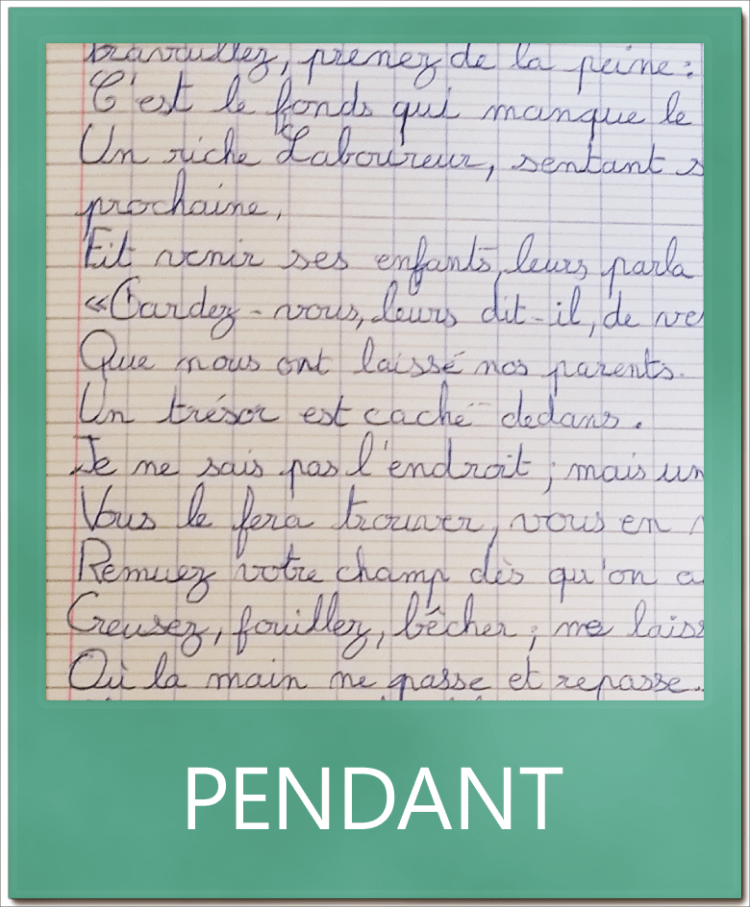 Travaillez, prenez de la peine :
C'est le fonds qui manque le
Un riche Laboureur, sentant s
prochaine,
Fit venir ses enfants, leurs parla
«Gardez-vous, leurs dit-il, de ve
Que nous ont laissé nos parents.
Un trésor est caché dedans.
Je ne sais pas l'endroit ; mais un
Vous le fera trouver, vous en
Remuez votre champ dès qu'on a
Creusez, fouillez, bêcher ; ne laiss
Où la main ne passe et repasse.
PENDANT